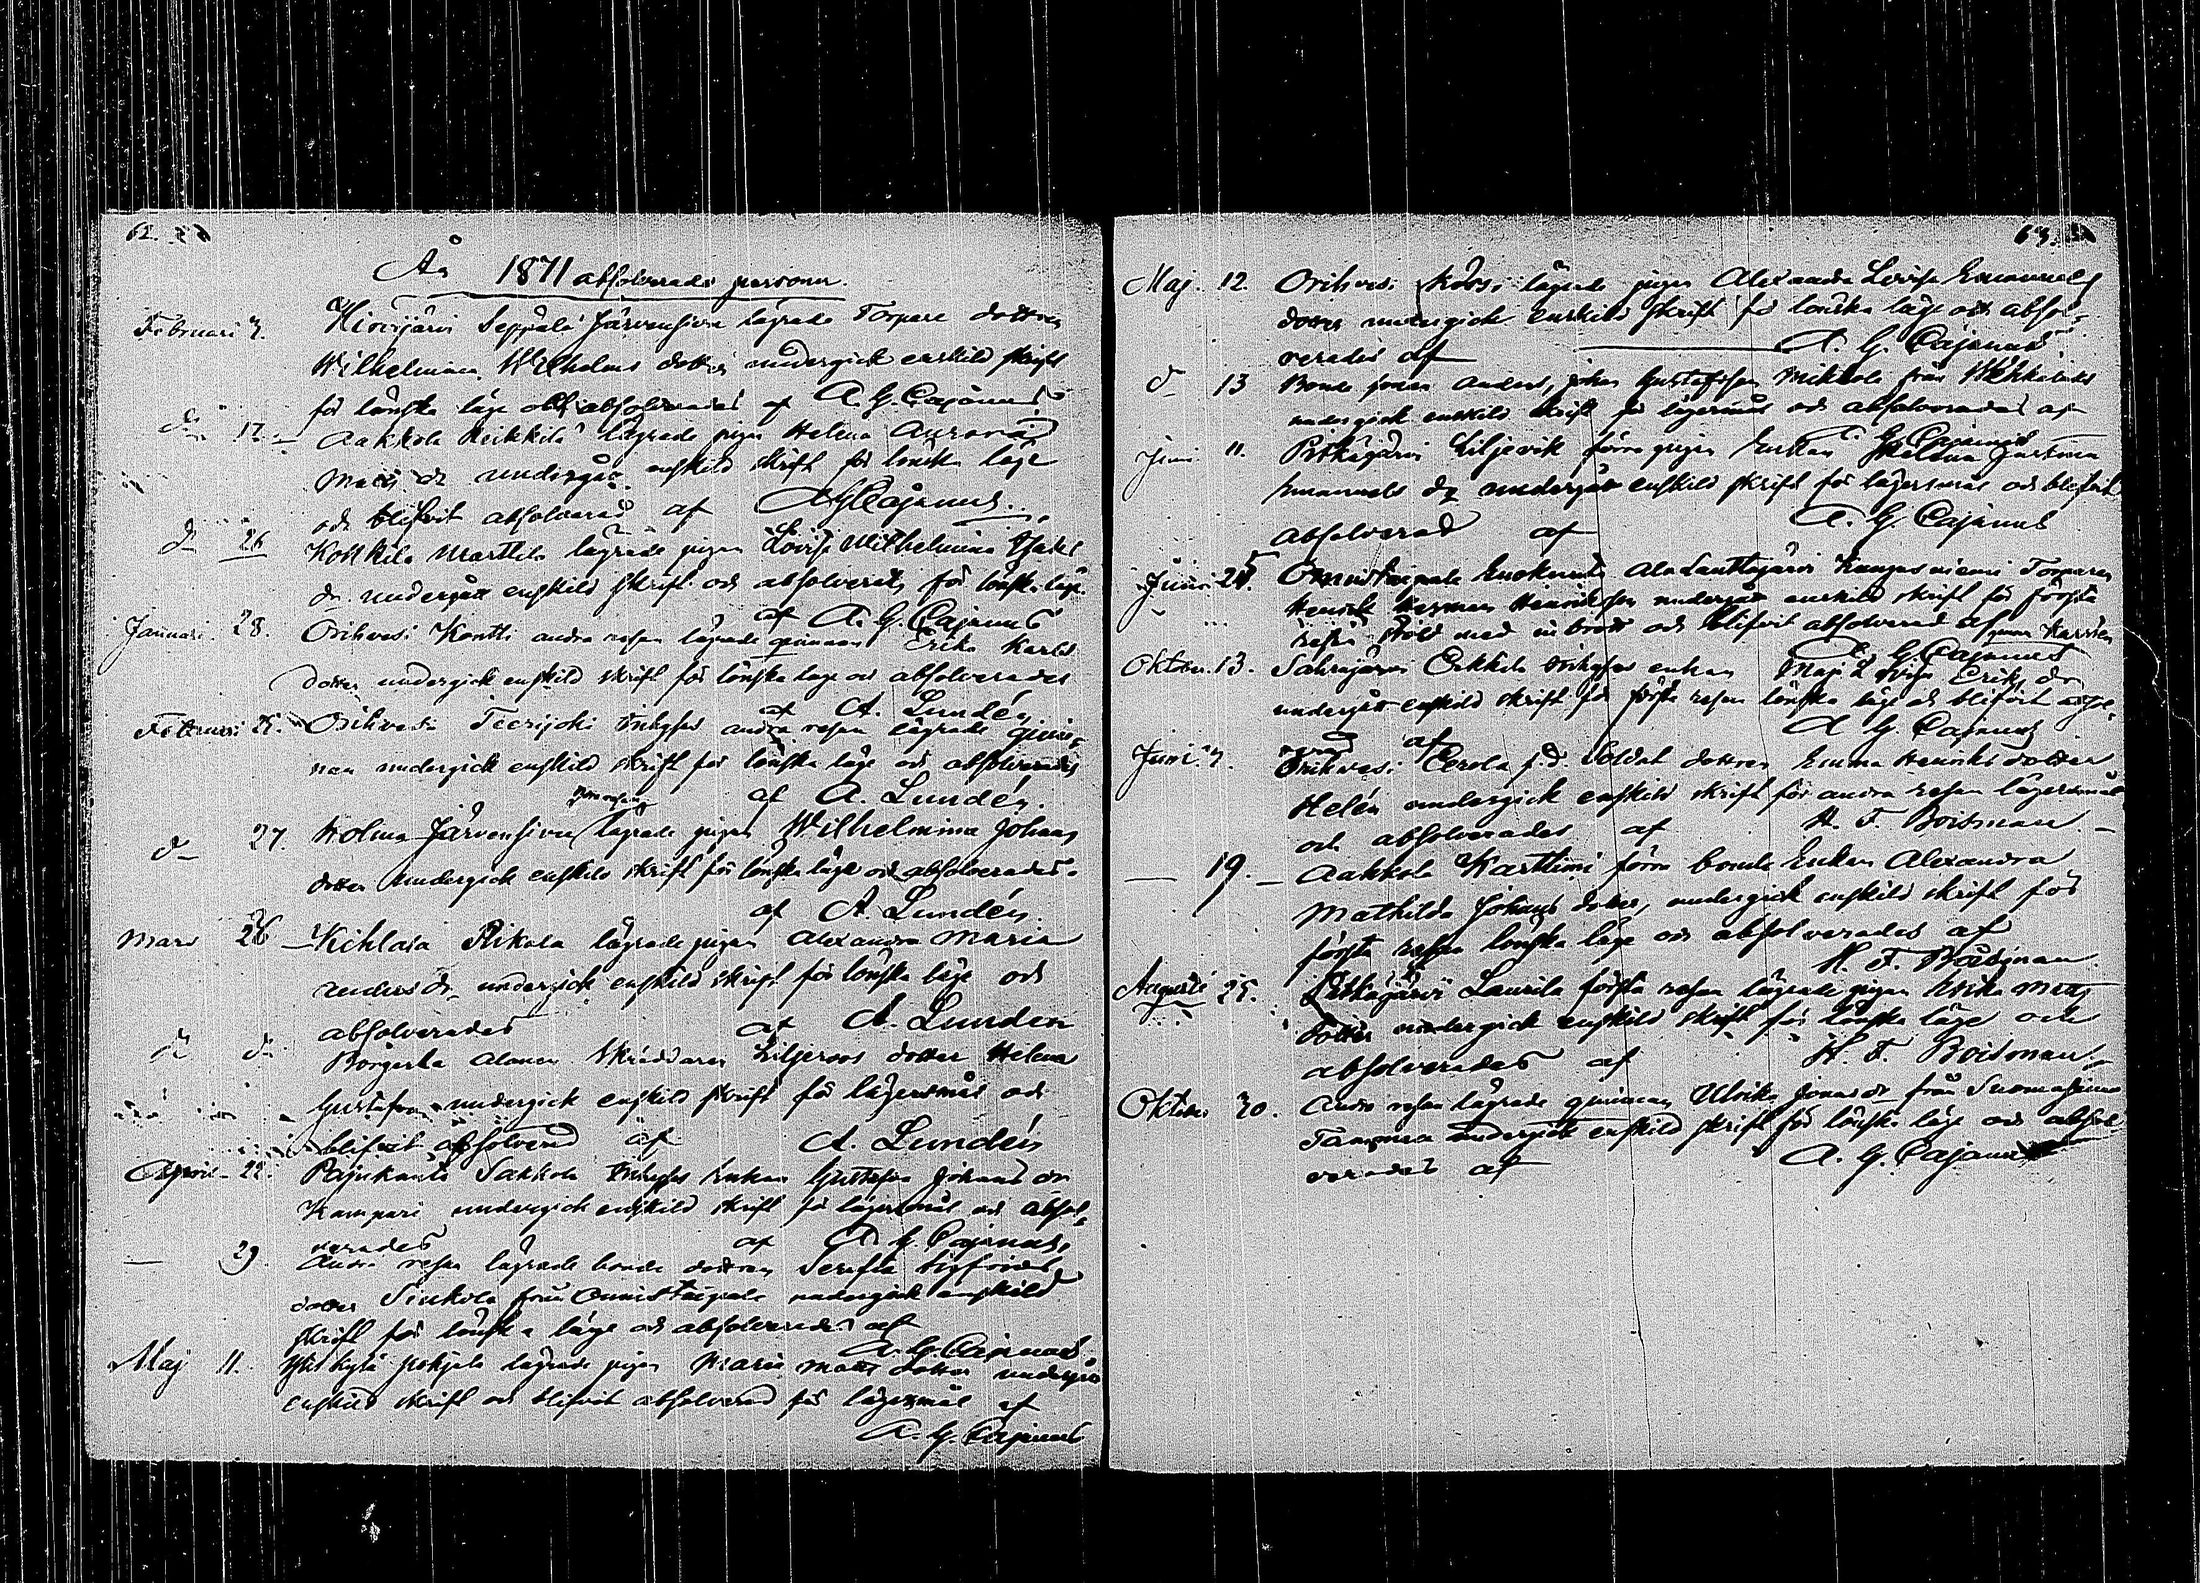 62.
År 1871 absolverade personer.
Februari 7. Hiovijärvi Seppälä Järvensivu lägrade Torpare dottren
Wilhelmina Wilhelms dotter undergick enskild skrift
för lönska läge och absolverades af A. G. Cajanus
d 12. Aakkola Heikkilä lägrade pigan Helena
Matts dr undergått enskild skrift för lönska läge
och blifvit absolverad af A G Cajanus
d 26 Marttila lägrade pigan Lovisa Wilhelmina
dr undergått enskild skrift och absolverats för lönska läge
af A. G. Cajanus
Januari 28. Orihvesi Kontti andra resan lägrade qvinnan Erika Karls
dotter undergick enskild skrift för lönska läge och absolverades
af A. Lundén
Februari Orihvesi Teerijoki andra resan lägrade qvin-
nan undergick enskild skrift för lönska läge och absolverades
af A. Lundén.
d 27. Kolma Järvensivu lägrade pigan Wilhelmina Johans
dotter undergick enskild skrift för lönska läge och absolverades
af A. Lundén.
Mars 26 Kihlaja lägrade pigan Alexandra Maria
Anders dr undergick enskild skrift för lönska läge och
absolverades af A. Lunden
d d Skräddaren Liljeroos dotter Helena
Gustafva undergick enskild skrift för lägersmål och
blifvit absolverad af A. Lundén
April 22. Sakkola enkan Gustafva Johans dr
Kampari undergick enskild skrift för lägersmål och absol-
verades af A. G. Cajanus,
— 29. Andra resan lägrade bonde dottren Serafia Sigfrids
dotter Sinkola från Onnistaipale undergick enskild
skrift för lönska läge och absolverades af
A. G. Cajanus
Maj 11. pohjala lägrade pigan Maria Matts dotter undergått
enskild skrift och blifvit absolverad för lägersmål af
A. G. Cajanus
63.
Maj. 12. Orihvesi lägrade pigan Alexandra Lovisa Emanuels
dotter undergick enskild skrift för lönska läge och absol-
verades af A. G. Cajanus
d 13 Bonde sonen Anders, Johan Gustafsson Mikkola från
undergick enskild skrift för lägersmål och absolverades af
A. G. Cajanus
Juni 11. Pitkäjärvi Liljevik förra pigan Enkan Justina
Emanuels dr undergått enskild skrift för lägersmål och blifvit
absolverad af A. G. Cajanus
Juni Onnistaipale Ala Lauttajärvi Kangasniemi Torparen
Henrik Herman Henriksson undergått enskild skrift för första
resan stöld med inbrott och blifvit absolverad af
A. G. Cajanus
Oktober 13. Salvajärvi Erkkilä enkan Maja Lovisa Eriks dr
undergått enskild skrift för första resan lönska läge och blifvit absol-
verad af A G Cajanus
Juni Orihvesi Eerola f. d. Soldat dottren Emma Henriks dotter
Helén undergick enskild skrift för andra resan lägersmål
och absolverades af H. F. Boisman.
— 19. — Aakkola Karttimi förra bonde Enkan Alexandra
Mathilda Johans dotter, undergick enskild skrift för
första resan lönska läge och absolverades af
H. F. Boisman
Augusti 25. Pitkäjärvi Laurila första resan lägrade pigan Erika Matts
dotter undergick enskild skrift för lönska läge och
absolverades af H. F. Boisman.
Oktober Andra resan lägrade qvinnan Ulrika Jonas dr från
undergick enskild skrift för lönska läge och absol-
verades af A. G. Cajanus